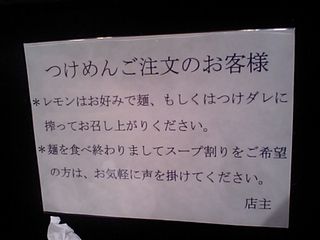 つけめんご注文のお客様
＊レモンはお好みで麺、もしくはつけダレに
搾ってお召し上がりください。
＊麺を食べ終わりましてスープ割りをご希望
の方は、お気軽に声を掛けてください。
店主